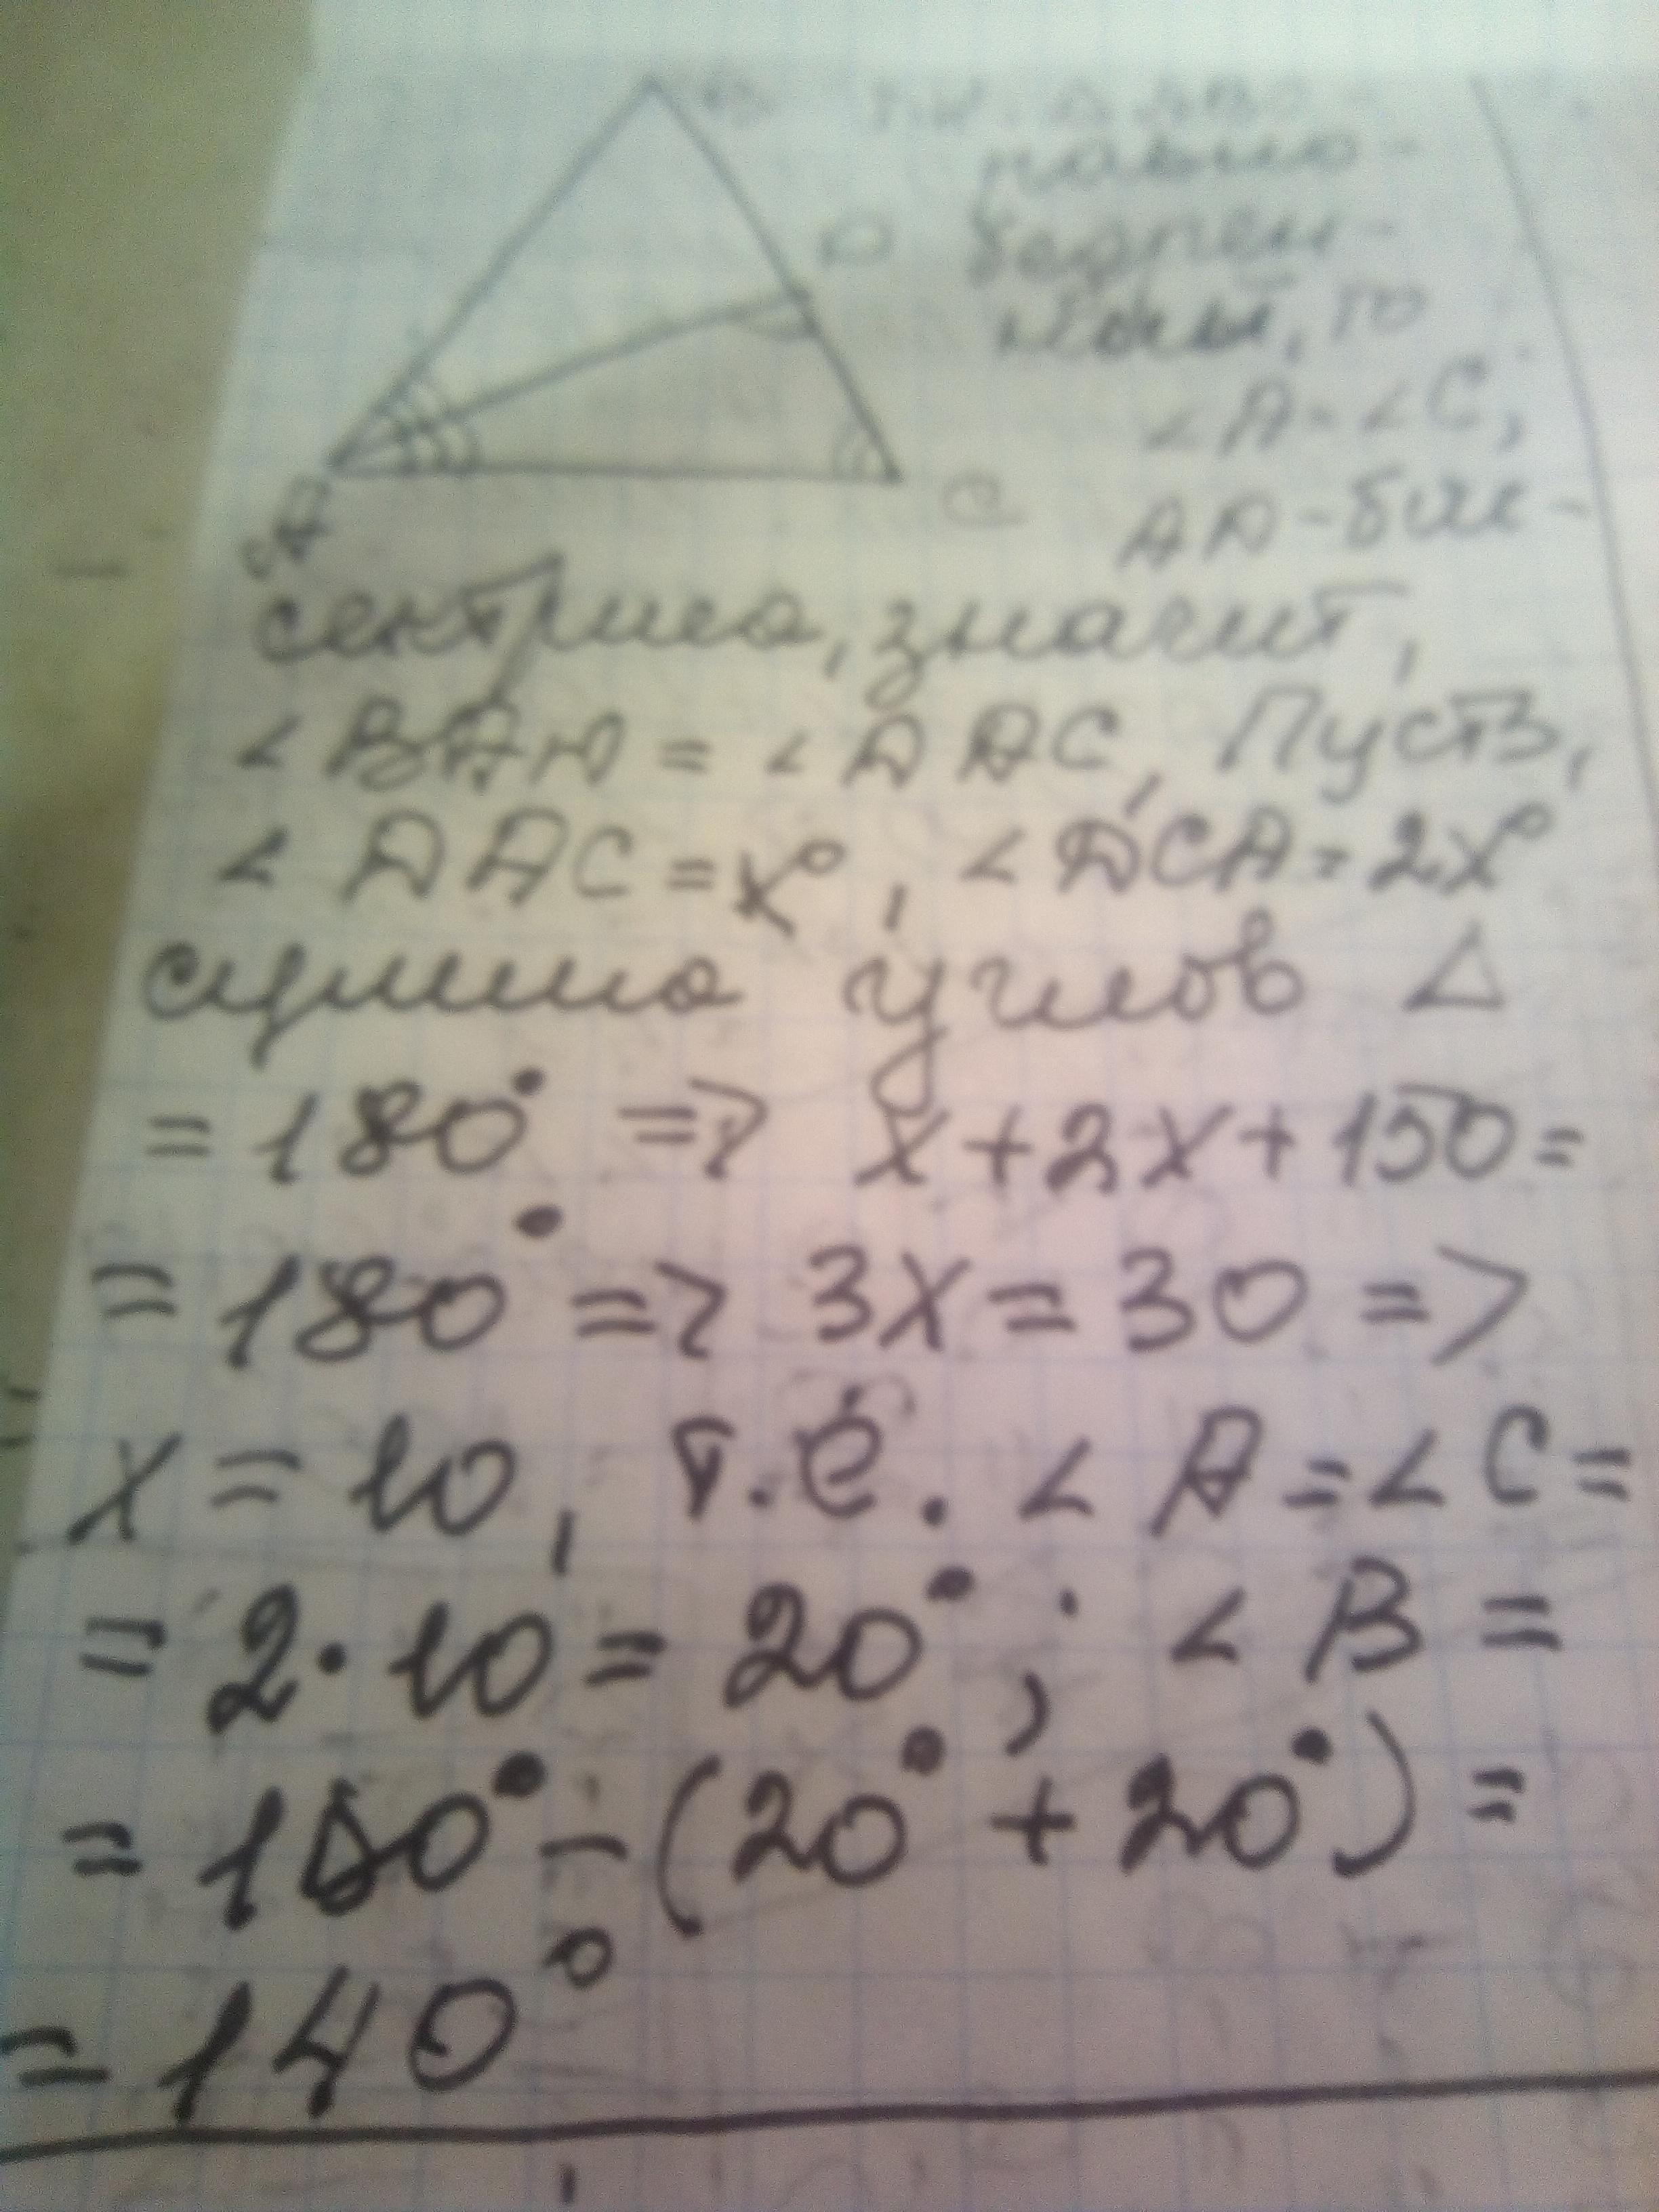 B
т.к. △ ABC -
равно-
бедрен-
ный, то
D
∠A = ∠C,
A
C
AD - бис-
сектриса, значит,
∠BAD = ∠DAC, Пусть,
∠DAC = x°, ∠DCA = 2x°
сумма углов △
= 180° => x + 2x + 150 =
= 180° => 3x = 30 =>
x = 10, т.е. ∠A = ∠C =
= 2 · 10 = 20°; ∠B =
= 180° - (20° + 20°) =
= 140°